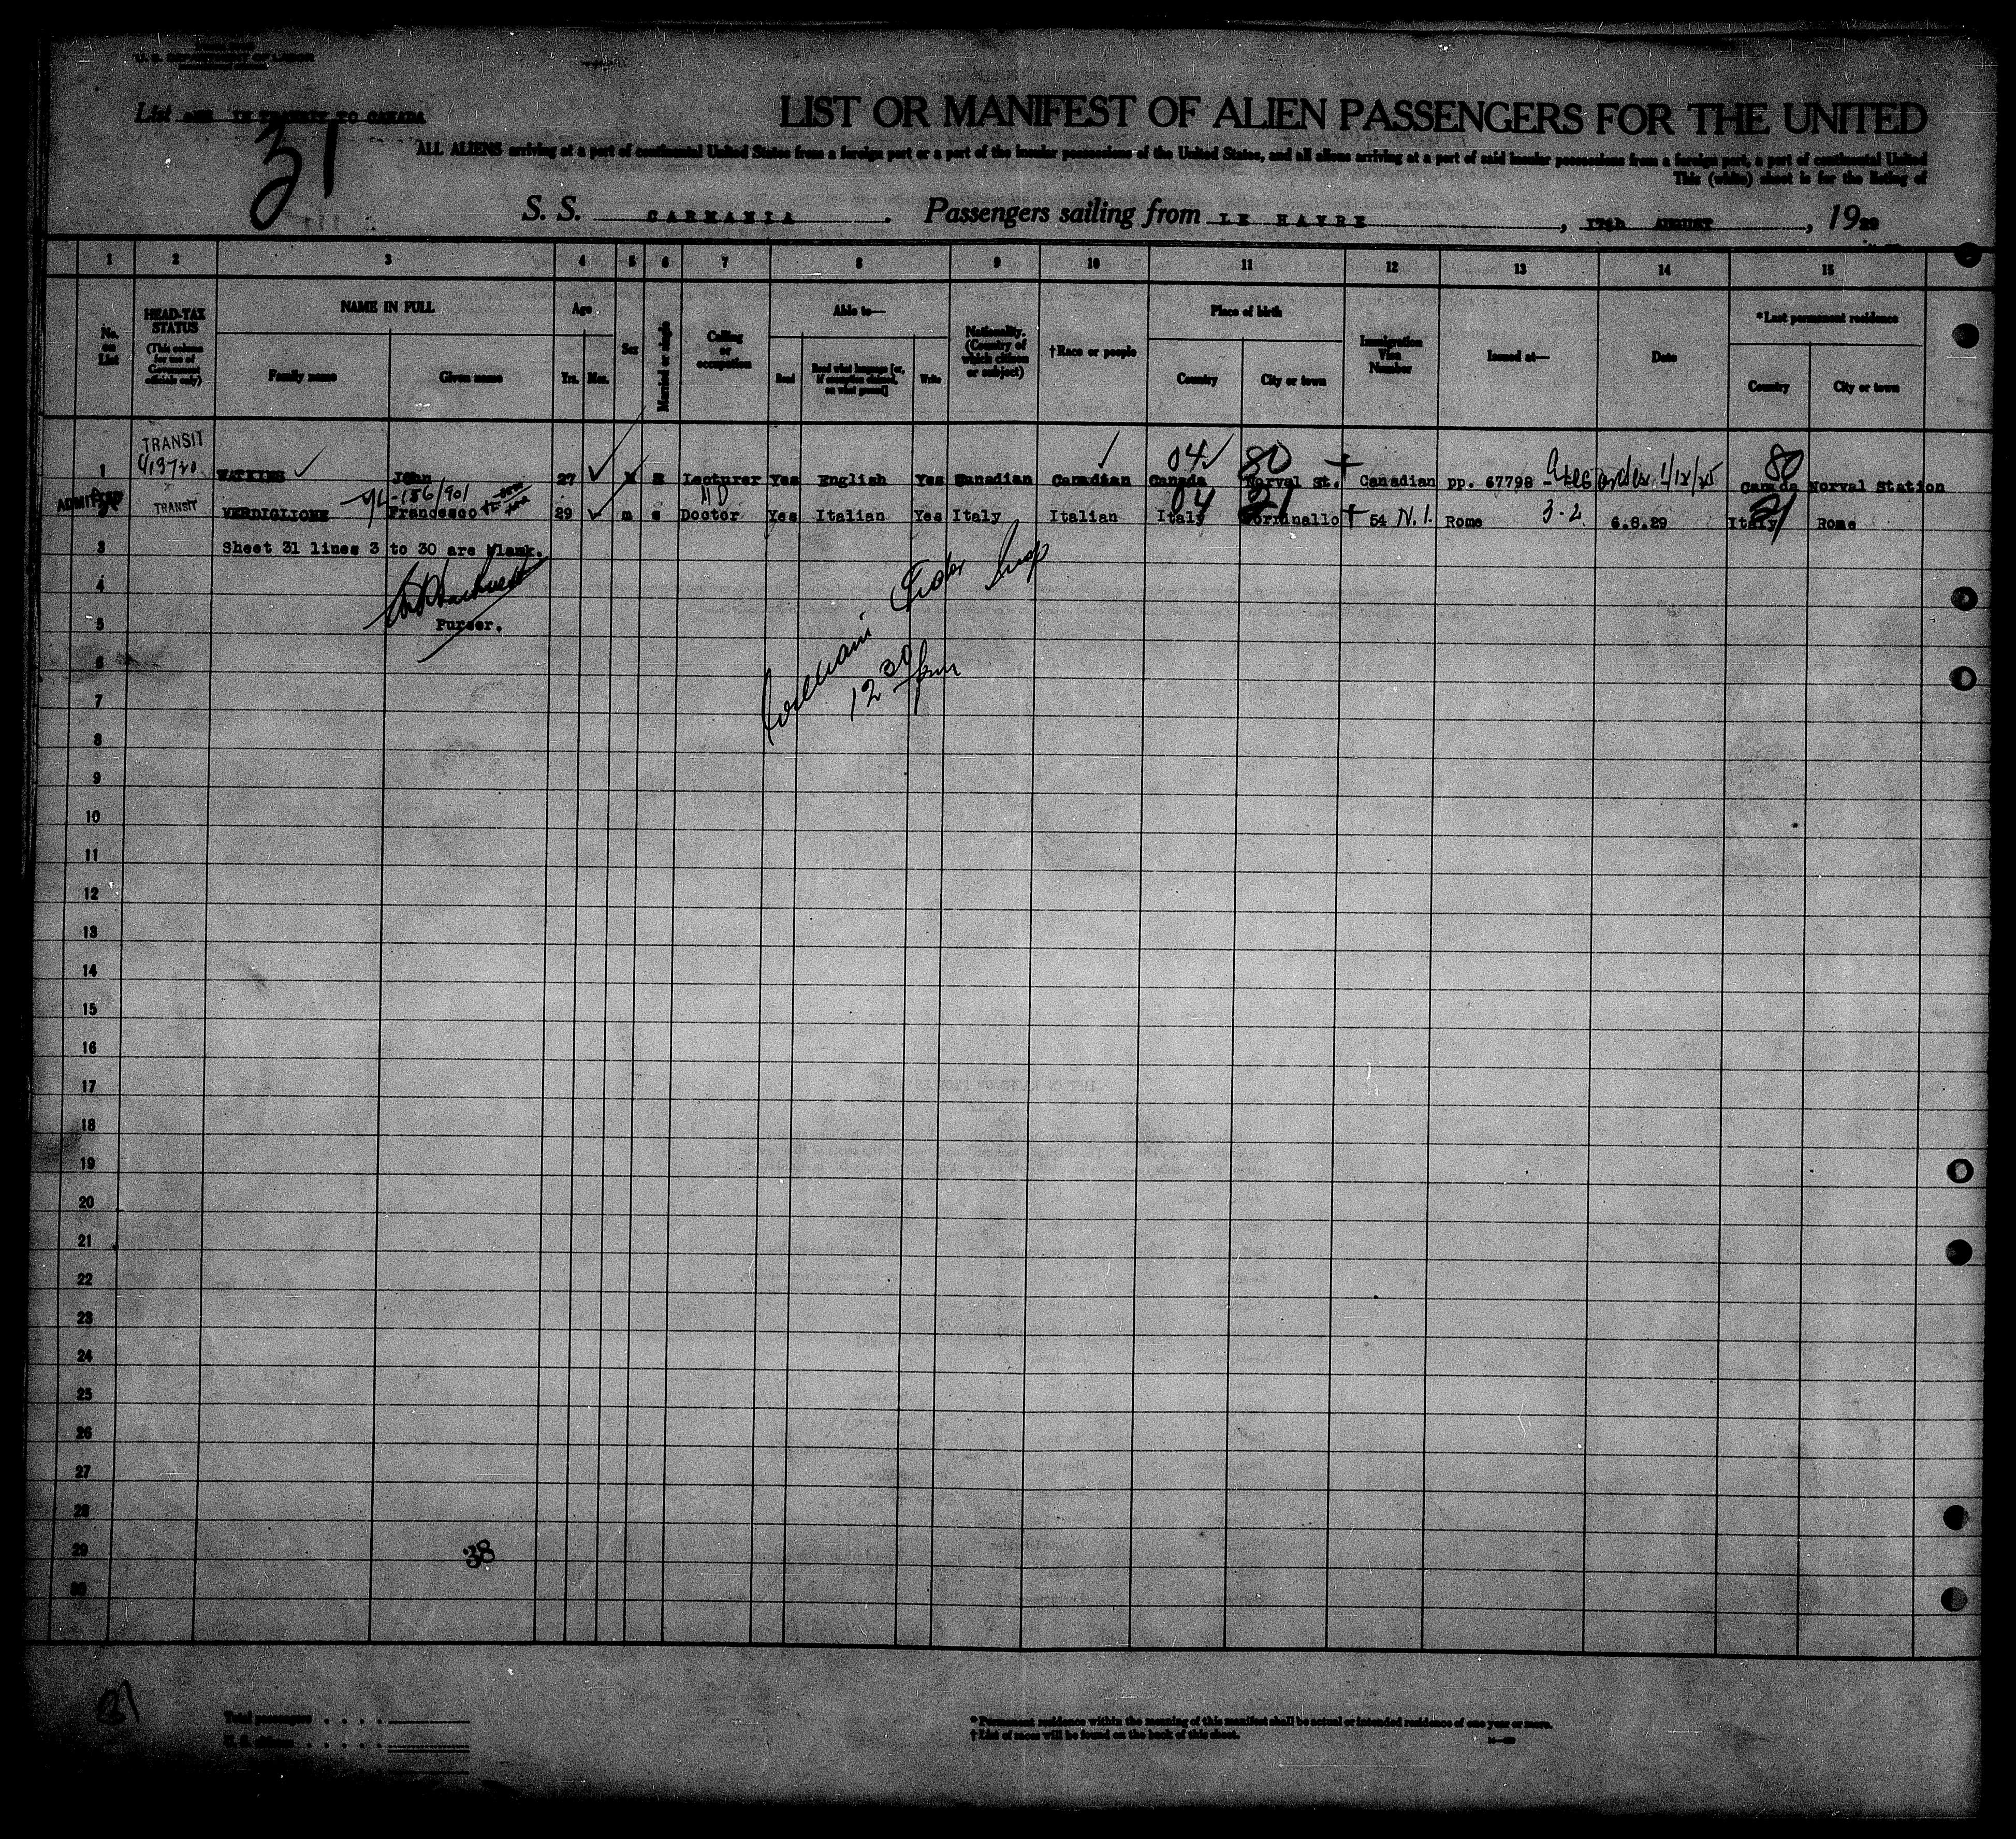 U. S. DEPARTMENT OF LABOR
List ONE IN TRANSIT TO CANADA
31
LIST OR MANIFEST OF ALIEN PASSENGERS FOR THE UNITED
ALL ALIENS arriving at a port of continental United States from a foreign port or a port of the insular possessions of the United States, and all aliens arriving at a port of said insular possessions from a foreign port, a port of continental United
This (white) sheet is for the listing of
S. S. CARMANIA. Passengers sailing from LE HAVRE, 17th AUGUST, 1929
1 2 3 4 5 6 7 8 9 10 11 12 13 14 15
No. on List
HEAD-TAX STATUS (This column for use of Government officials only)
NAME IN FULL
Family name
Given name
Age
Yrs.
Mos.
Sex
Married or single
Calling or occupation
Able to—
Read
Read what language [or, if exemption claimed, on what ground]
Write
Nationality. (Country of which citizen or subject)
†Race or people
Place of birth
Country
City or town
Immigration Visa Number
Issued at—
Date
*Last permanent residence
Country
City or town
TRANSIT 04 80 80
1 WATKINS John 27 M S Lecturer Yes English Yes Canadian Canadian Canada Norval St. Canadian pp. 67798 Canada Norval Station
156/901 MD 04 21 21
ADMITTED TRANSIT VERDIGLIONE Francesco 29 m s Doctor Yes Italian Yes Italy Italian Italy 54 N.I. Rome 3-2 6.8.29 Italy Rome
3 Sheet 31 lines 3 to 30 are blank.
4
5 Purser.
6
12 30 pm
7
8
9
10
11
12
13
14
15
16
17
18
19
20
21
22
23
24
25
26
27
28
29 38
30
31
Total passengers
U. S. citizens
* Permanent residence within the meaning of this manifest shall be actual or intended residence of one year or more.
† List of races will be found on the back of this sheet.